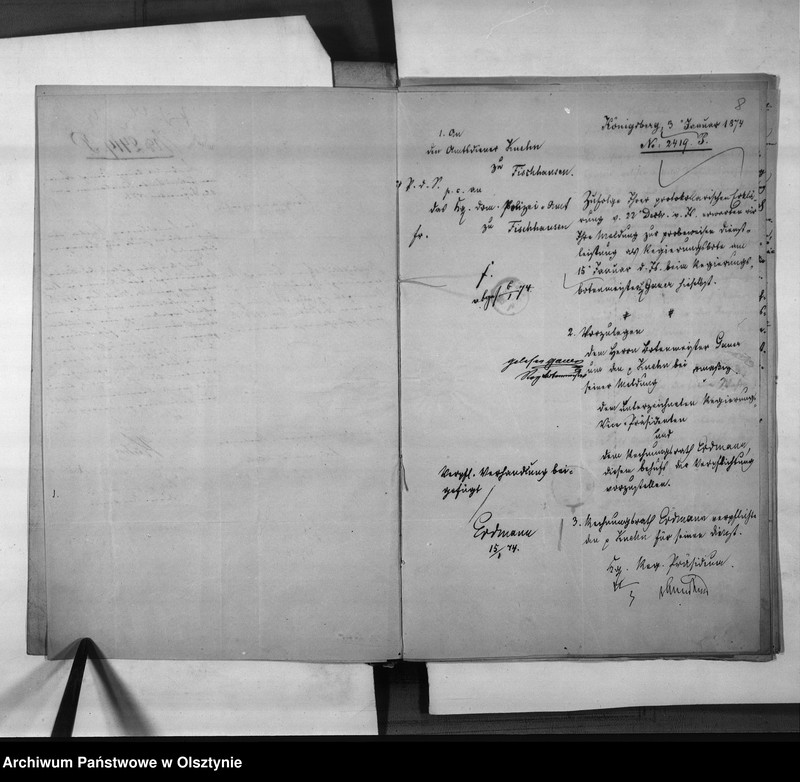 8
Königsberg, 3 Januar 1874
No: 2419 P.
1. An
den Amtsdiener
zu Fischhausen.
p. c. an
das Kg. Dom. Polizei-Amt
zu Fischhausen
fr.
Zufolge Ihrer protokollarischen Erklä-
rung v. 22 Dezbr. v. Js. erwarten wir
Ihre Meldung zur probeweisen Dienst-
leistung als Regierungsbote am
15 Januar d. Js. beim Regierungs-
botenmeister hieselbst.
2. Vorzulegen
dem Herrn Botenmeister
um den p bei
seiner Meldung
dem unterzeichneten Regierungs-
Vice-Präsidenten
und
dem Rechnungsrath Erdmann,
diesem behufs der Verpflichtung
vorzustellen.
gelesen
Verpfl. Verhandlung bei-
gefügt
Erdmann
15/1 74.
3. Rechnungsrath Erdmann verpflichte
den p für seinen Dienst.
Kg. Reg. Präsidium.
1.
Archiwum Państwowe w Olsztynie